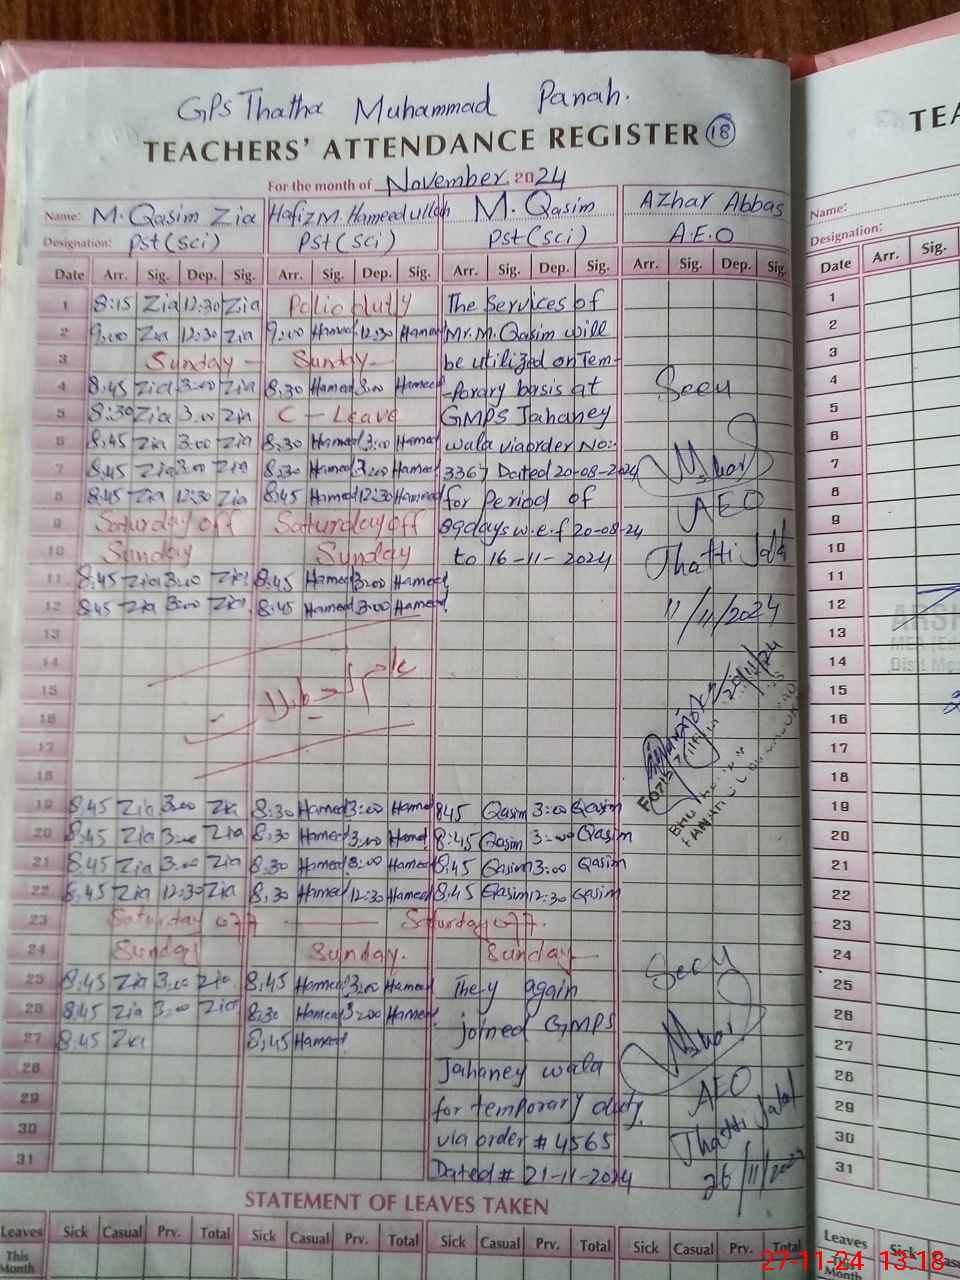 GPS Thatha Muhammad Panah.
TEACHERS' ATTENDANCE REGISTER 18
For the month of November 2024
Name: M. Qasim Zia Hafiz M. Hameedullah M. Qasim Azhar Abbas
Designation: Pst(Sci) PSt(Sci) Pst(Sci) A.E.O
Date Arr. Sig. Dep. Sig. Arr. Sig. Dep. Sig. Arr. Sig. Dep. Sig. Arr. Sig. Dep. Sig.
1 8:15 Zia 12:30 Zia Polio duty The Services of
2 9:00 Zia 12:30 Zia 9:00 Hameed 12:30 Hameed Mr. M. Qasim will
3 Sunday Sunday be utilized on Tem-
4 8:45 Zia 3:00 Zia 8:30 Hameed 3:00 Hameed -porary basis at Seen
5 8:30 Zia 3:00 Zia C-Leave GMPS Jahaney
6 8:45 Zia 3:00 Zia 8:30 Hameed 3:00 Hameed wala via order No:-
7 8:45 Zia 3:00 Zia 8:30 Hameed 3:00 Hameed 3367 Dated 20-08-2024
8 8:45 Zia 12:30 Zia 8:45 Hameed 12:30 Hameed for Period of AEO
9 Saturday off Saturday off 89 days w.e.f 20-08-24
10 Sunday Sunday to 16-11-2024 Thatti Jalal
11 8:45 Zia 3:00 Zia 8:45 Hameed 3:00 Hameed
12 8:45 Zia 3:00 Zia 8:45 Hameed 3:00 Hameed 11/11/2024
13
14
15 عام تعطیلات
16
17
18
19 8:45 Zia 3:00 Zia 8:30 Hameed 3:00 Hameed 8:45 Qasim 3:00 Qasim
20 8:45 Zia 3:00 Zia 8:30 Hameed 3:00 Hameed 8:45 Qasim 3:00 Qasim
21 8:45 Zia 3:00 Zia 8:30 Hameed 3:00 Hameed 8:45 Qasim 3:00 Qasim
22 8:45 Zia 12:30 Zia 8:30 Hameed 12:30 Hameed 8:45 Qasim 12:30 Qasim
23 Saturday off Saturday off.
24 Sunday Sunday. Sunday
25 8:45 Zia 3:00 Zia 8:45 Hameed 3:00 Hameed They again Seen
26 8:45 Zia 3:00 Zia 8:30 Hameed 3:00 Hameed joined GMPS
27 8:45 Zia 8:45 Hameed
28 Jahaney wala
29 for temporary duty. AEO
30 via order # 4565 Thatti Jalal
31 Dated # 21-11-2024 26/11/2024
STATEMENT OF LEAVES TAKEN
Leaves Sick Casual Prv. Total Sick Casual Prv. Total Sick Casual Prv. Total Sick Casual Prv. Total
This Month
TEA
Name:
Designation:
Date Arr. Sig.
1
2
3
4
5
6
7
8
9
10
11
12
13
14
15
16
17
18
19
20
21
22
23
24
25
26
27
28
29
30
31
Leaves Sick
This Month
27-11-24 13:18